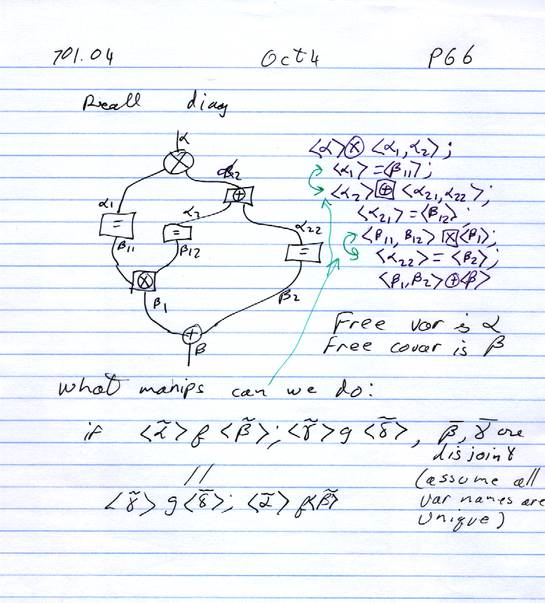 701.04 Oct 4 PG 6
Recall diag
α
⊗
α2
⊕
α1
=
β11
α2
=
β12
α22
=
⊗
β1
β2
⊕
β
<α>⊗<α1,α2>;
<α1>=<β11>;
<α2>⊕<α21,α22>;
<α21>=<β12>;
<β11,β12>⊠<β1>;
<α22>=<β2>;
<β1,β2>⊕<β>
Free var is α
Free covar is β
what manips can we do:
if <α̃> f <β̃>; <γ̃> g <δ̃>, β̄, γ̄ are
disjoint
//
(assume all
<γ̃> g <δ̃>; <α̃> f <β̃>
var names are
unique)